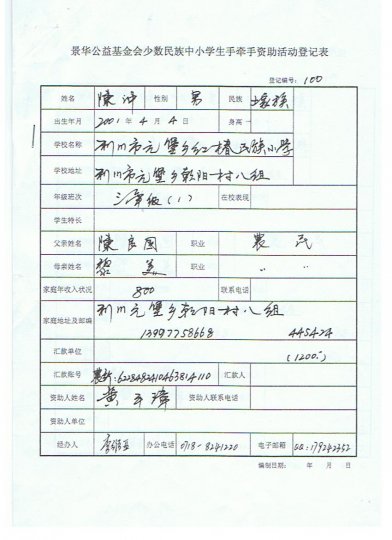 景华公益基金会少数民族中小学生手牵手资助活动登记表
登记编号：100
姓名 陳沖 性别 男 民族 土家族
出生年月 2001年4月4日 身高
学校名称 利川市元堡乡红椿民族小学
学校地址 利川市元堡乡朝阳村八组
年级班次 三年级(1) 在校表现
学生特长
父亲姓名 陳良国 职业 农民
母亲姓名 黎 美 职业 〃 〃
家庭年收入状况 800 联系电话
家庭地址及邮编 利川元堡乡朝阳村八组
13997758668 445424
汇款单位 (1200.)
汇款账号 6228482410463814110 汇款人
资助人姓名 黄 玮 资助人联系电话
资助人单位
经办人 办公电话 0718-8241220 电子邮箱 QQ:179242352
编制日期： 年 月 日